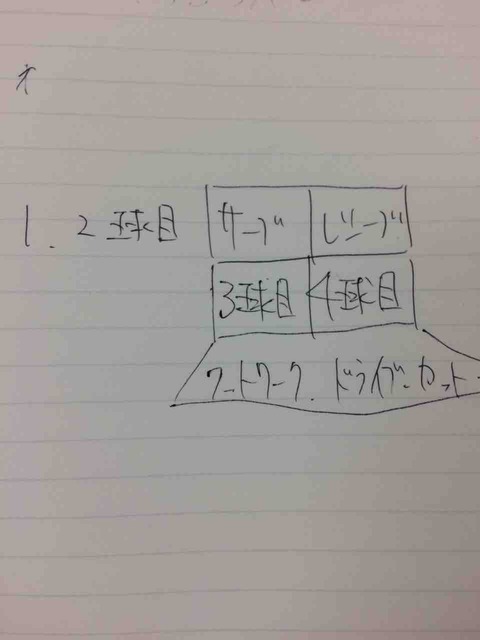 1. 2球目 サーブ レシーブ
3球目 4球目
フートワーク. ドライブ. カット